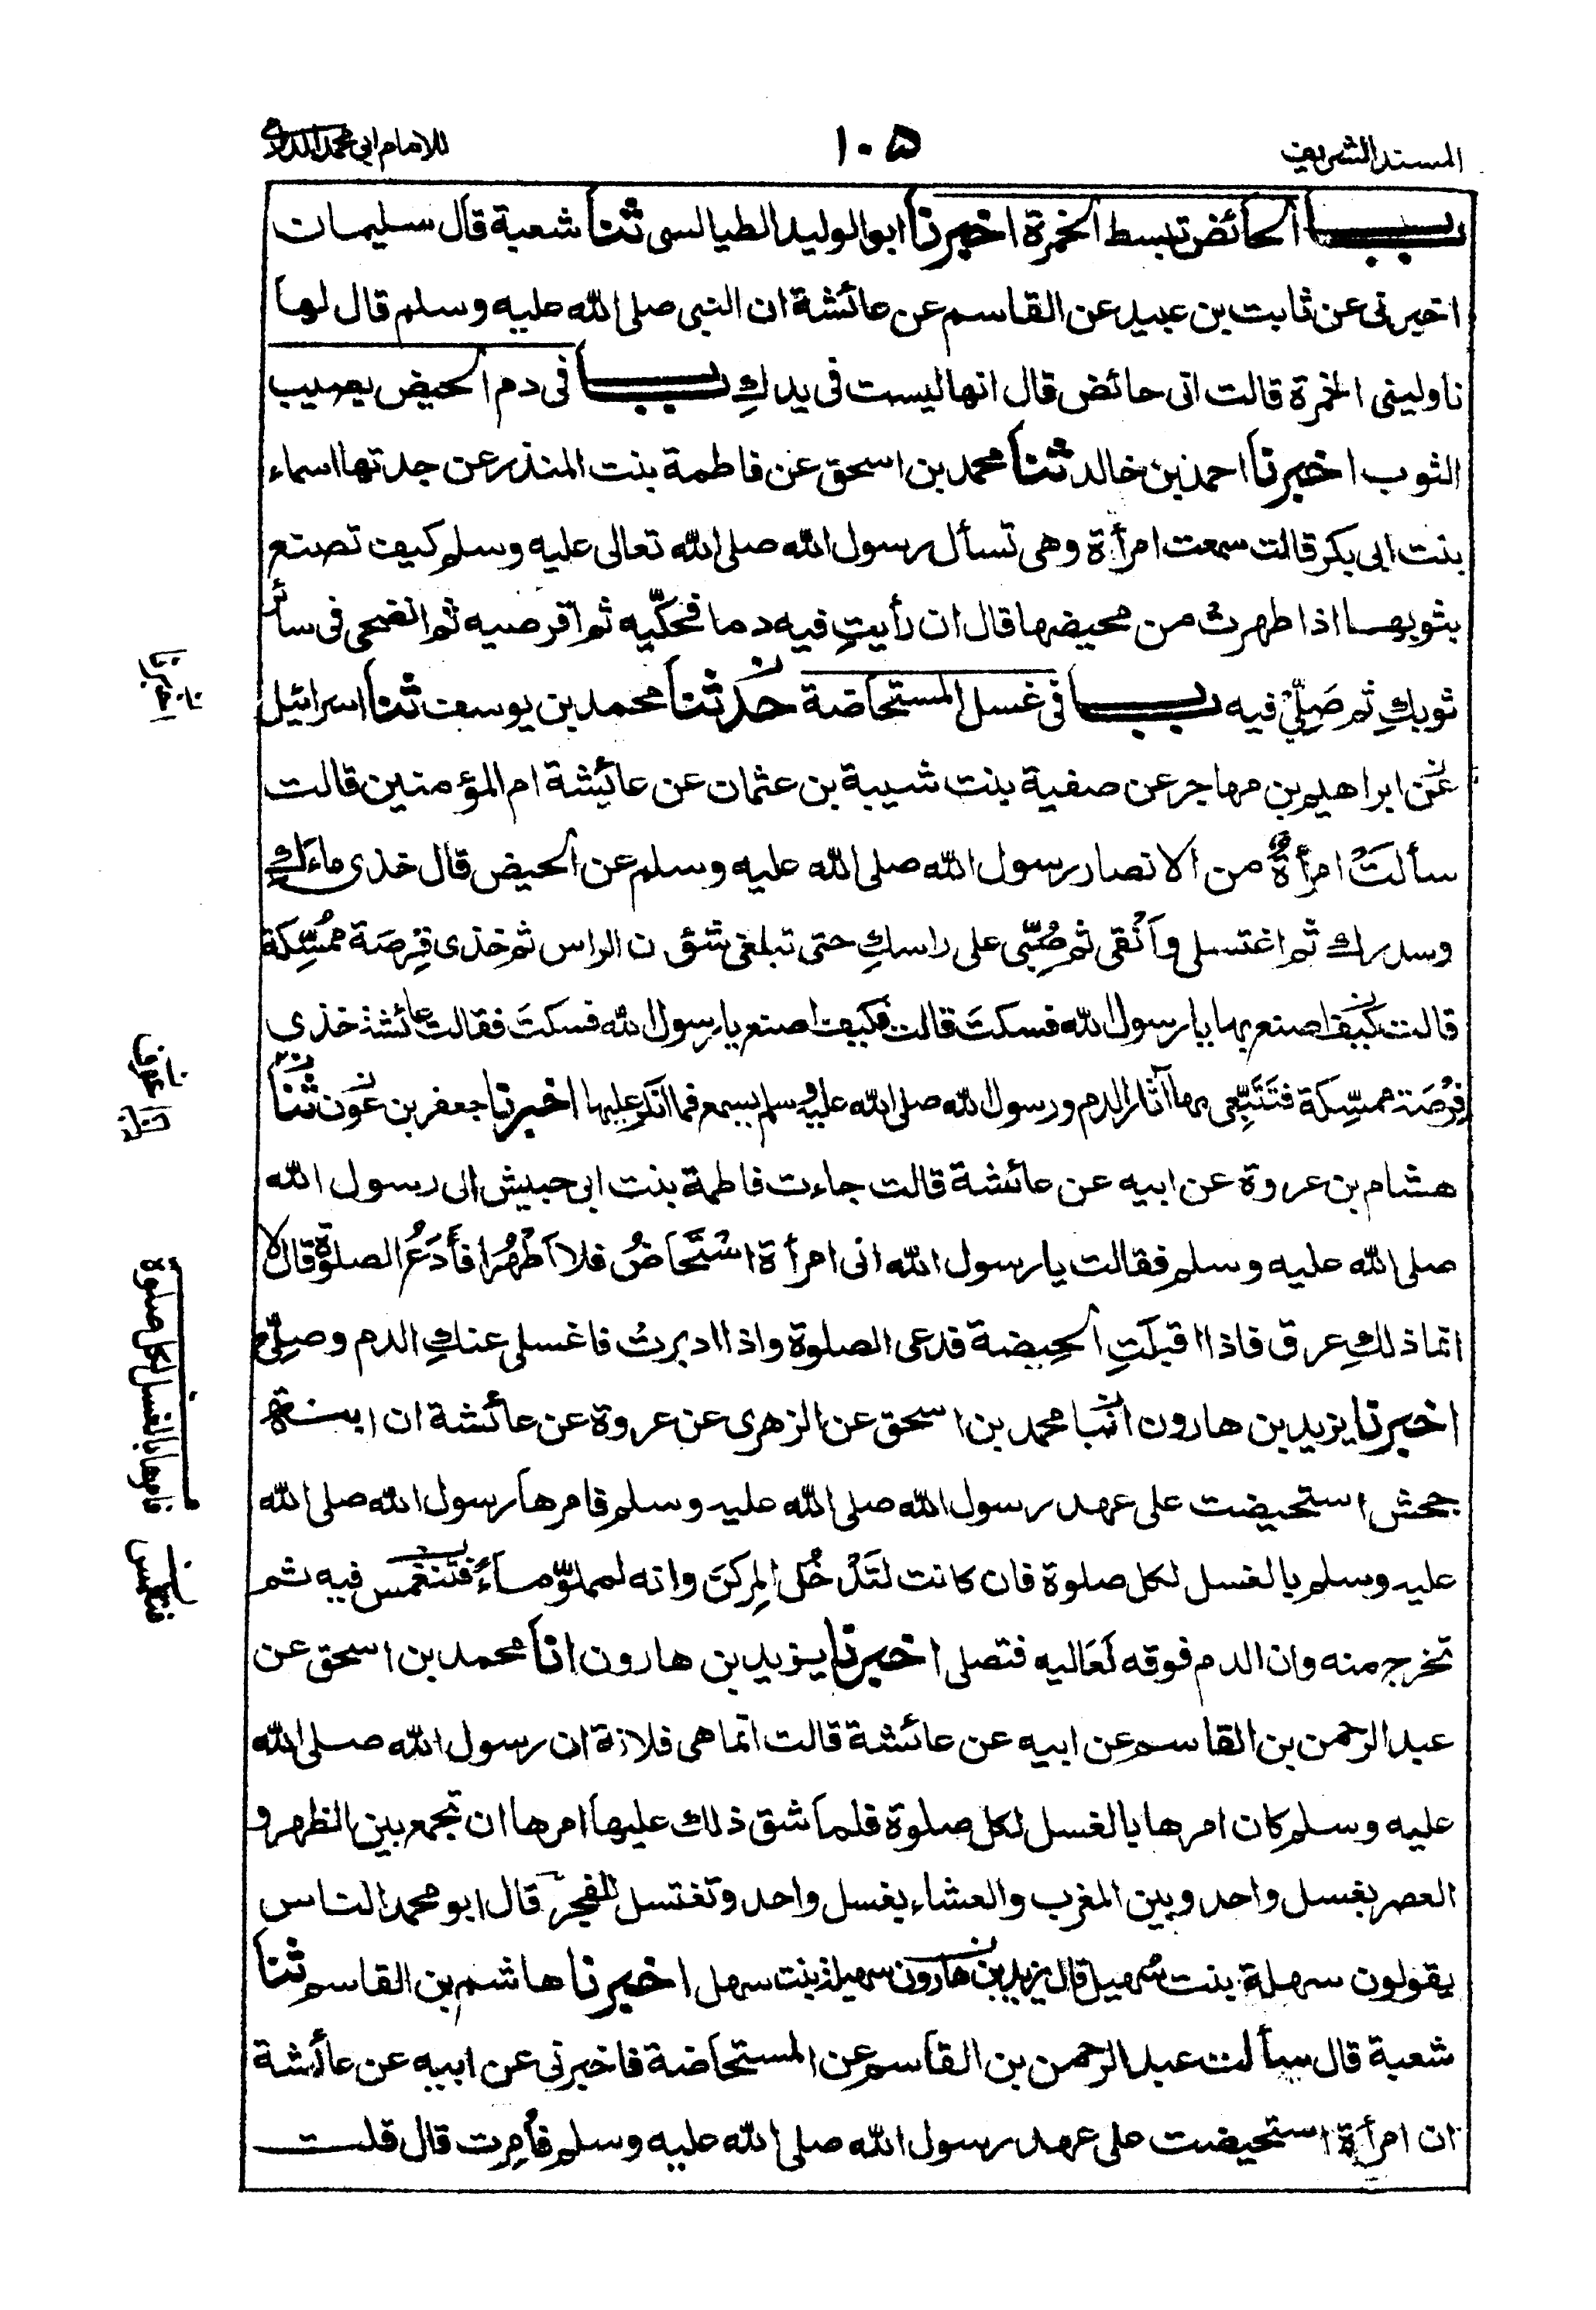 المسند الشريف
١٠٥
للامام ابي محمد الدارمي
باب الحائض تبسط الخمرة اخبرنا ابو الوليد الطيالسى ثنا شعبة قال سليمان
اخبرنى عن ثابت بن عبيد عن القاسم عن عائشة ان النبى صلى الله عليه وسلم قال لها
ناولينى الخمرة قالت انى حائض قال انها ليست فى يدكِ باب فى دم الحيض يصيب
الثوب اخبرنا احمد بن خالد ثنا محمد بن اسحق عن فاطمة بنت المنذر عن جدتها اسماء
بنت ابى بكر قالت سمعت امرأة وهى تسأل رسول الله صلى الله تعالى عليه وسلم كيف تصنع
بثوبها اذا طهرت من محيضها قال ان رأيتِ فيه دما فحكّيه ثم اقرصيه ثم انضحى فى سائر
ثوبكِ ثم صَلِّىْ فيه باب فى غسل المستحاضة حُدثنا محمد بن يوسف ثنا اسرائيل
عن ابراهيم بن مهاجر عن صفية بنت شيبة بن عثمان عن عائشة ام المؤمنين قالت
سألَتْ امرأةٌ من الانصار رسول الله صلى الله عليه وسلم عن الحيض قال خذى ماءكِ
وسدرك ثم اغتسلى وأنْقى ثم صُبّى على راسكِ حتى تبلغى شؤن الراس ثم خذى فِرصَة ممُسّكة
قالت كيف اصنع بها يا رسول الله فسكتَ قالت فكيف اصنع يا رسول الله فسكتَ فقالت عائشة خذى
فِرْصَة ممسّكة فتَتَبِّعى بها آثار الدم ورسول الله صلى الله عليه وسلم يسمع فما انكر عليها اخبرنا جعفر بن عَون ثنا
هشام بن عروة عن ابيه عن عائشة قالت جاءت فاطمة بنت ابى حبيش الى رسول الله
صلى الله عليه وسلم فقالت يا رسول الله انى امرأة اسْتَحَاضُ فلا اَطْهُرُ افأدَعُ الصلوة قال لا
انما ذلكِ عرق فاذا اقبلَتِ الحيضة فدعى الصلوة واذا ادبرت فاغسلى عنكِ الدم وصلّى
اخبرنا يزيد بن هارون انبا محمد بن اسحق عن الزهرى عن عروة عن عائشة ان ابنة
جحش استحيضت على عهد رسول الله صلى الله عليه وسلم فامرها رسول الله صلى الله
عليه وسلم بالغسل لكل صلوة فان كانت لتَدْخُل المِركنَ وانه لمملوّ ماءً فتنغمس فيه ثم
تخرج منه وان الدم فوقه لَعَاليه فتصلى اخبرنا يزيد بن هارون انا محمد بن اسحق عن
عبد الرحمن بن القاسم عن ابيه عن عائشة قالت انما هى فلانة ان رسول الله صلى الله
عليه وسلم كان امرها بالغسل لكل صلوة فلما شق ذلك عليها امرها ان تجمع بين الظهر و
العصر بغسل واحد وبين المغرب والعشاء بغسل واحد وتغتسل للفجر قال ابو محمد الناس
يقولون سهلة بنت سُهيل قال يزيد بن هارون سهيلة بنت سهل اخبرنا هاشم بن القاسم ثنا
شعبة قال سألت عبد الرحمن بن القاسم عن المستحاضة فاخبرنى عن ابيه عن عائشة
ان امرأة استحيضت على عهد رسول الله صلى الله عليه وسلم فأُمِرت قال قلت
اخبرنا
فامرها بالغسل لكل صلوة